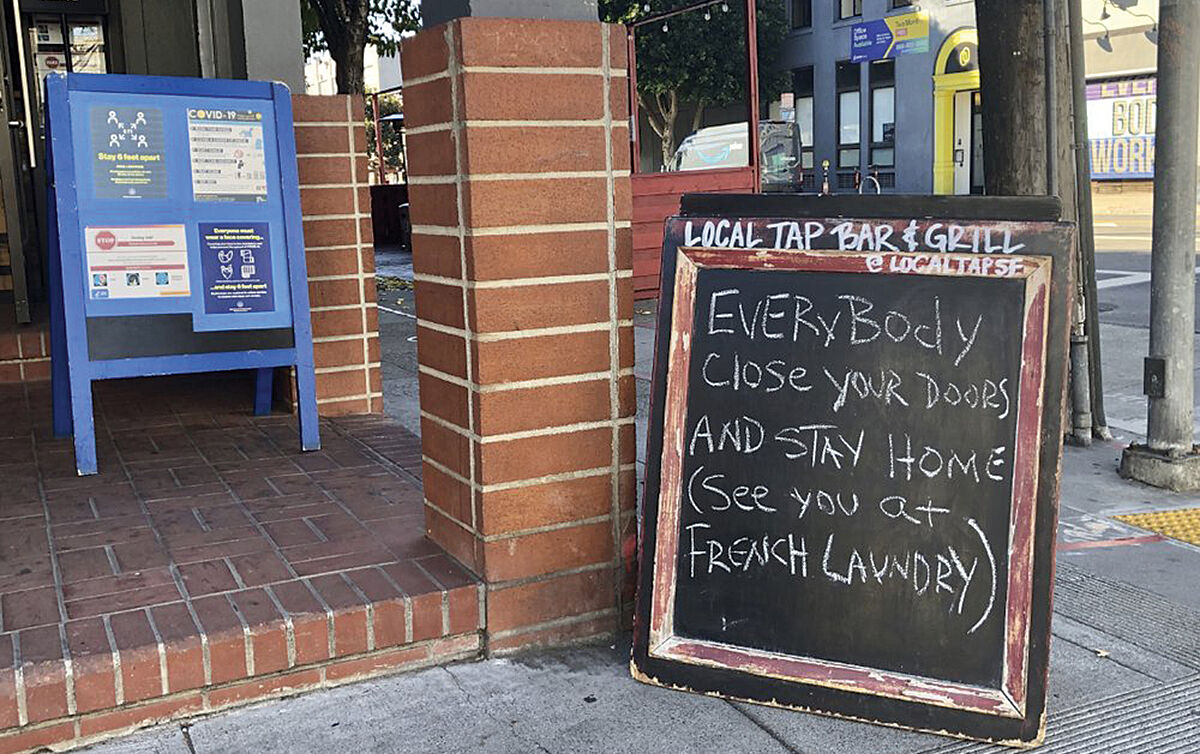 COVID-19
Stay 6 feet apart
STOP
Everyone must
wear a face covering...
...and stay 6 feet apart
Office
Space
Available
EVERY
BODY
WORK
LOCAL TAP BAR & GRILL
@LOCALTAPSF
EVERyBody
Close YOUR DOORS
AND STAY HOME
(See you at
FRENCH LAUNDRY)